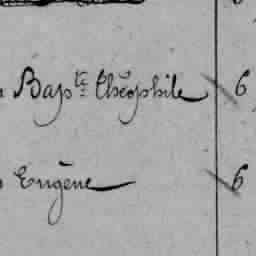 Bap.te Théophile 6
Eugène 6